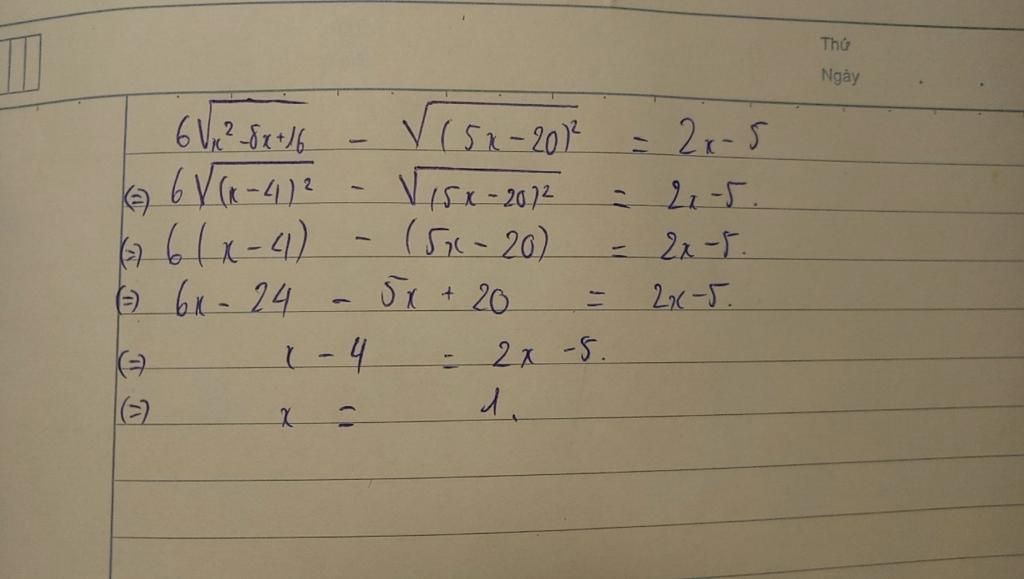 Thứ
Ngày
6√(x²-8x+16) - √((5x-20)²) = 2x-5
(=) 6√((x-4)²) - √((5x-20)²) = 2x-5.
(=) 6(x-4) - (5x-20) = 2x-5.
(=) 6x-24 - 5x+20 = 2x-5.
(=) x-4 = 2x-5.
(=) x = 1.